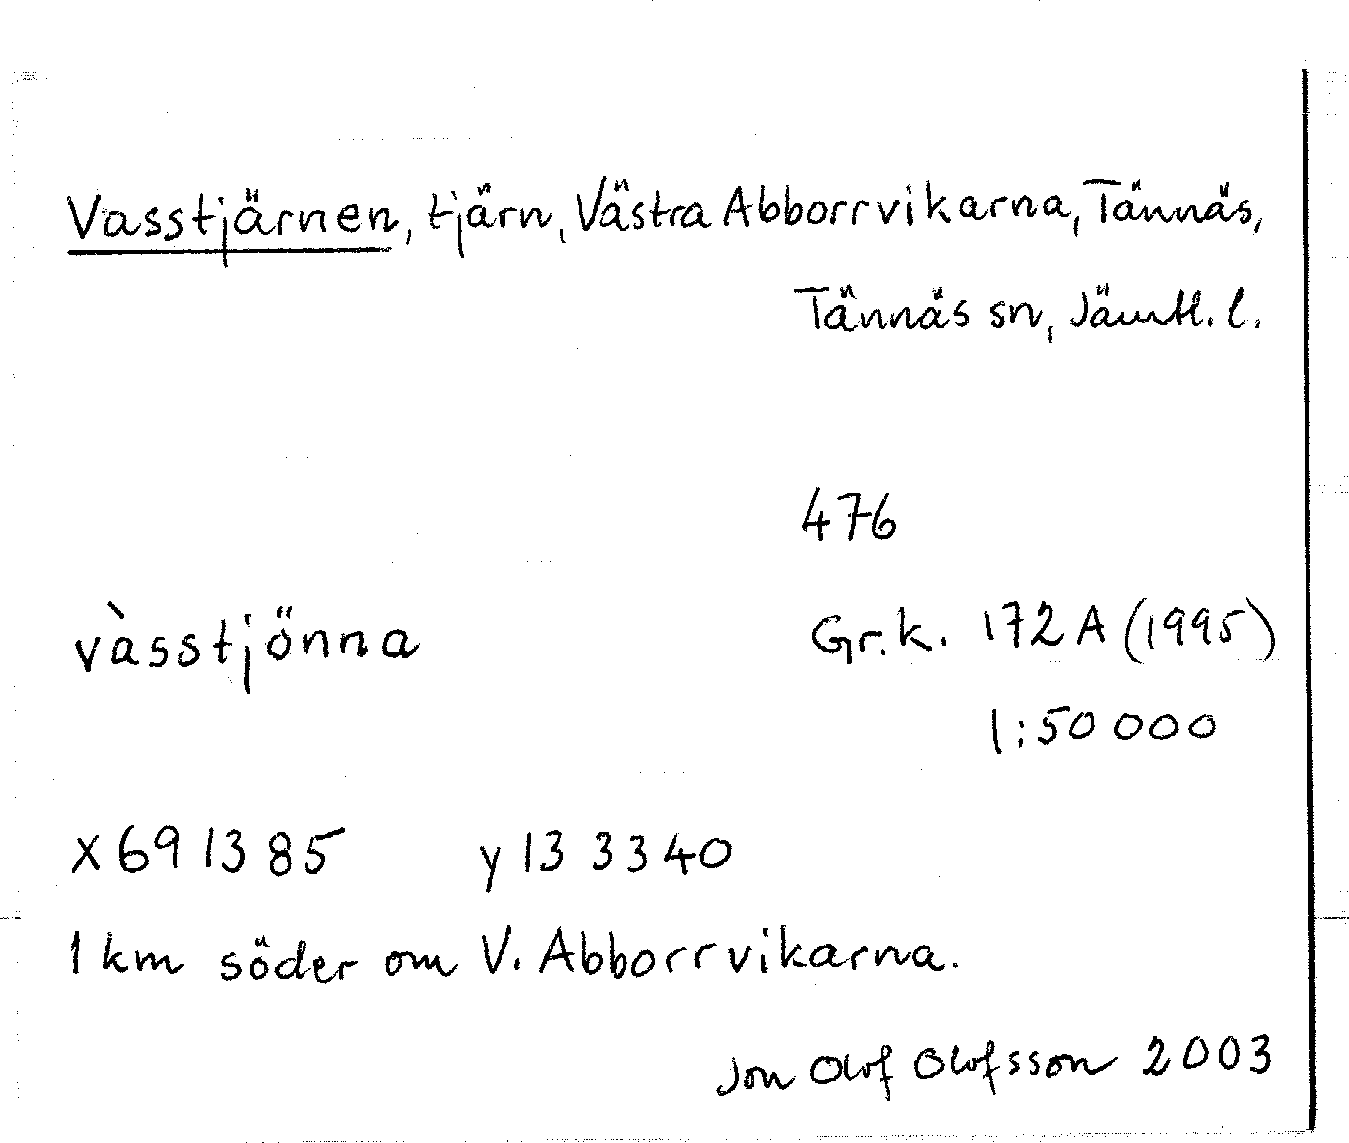 Vasstjärnen, tjärn, Västra Abborrvikarna, Tännäs,
Tännäs sn, Jämtl. l.
476
vàsstjönna Gr.k. 172 A (1995)
1:50 000
x 69 13 85 y 13 33 40
1 km söder om V. Abborrvikarna.
Jon Olof Olofsson 2003